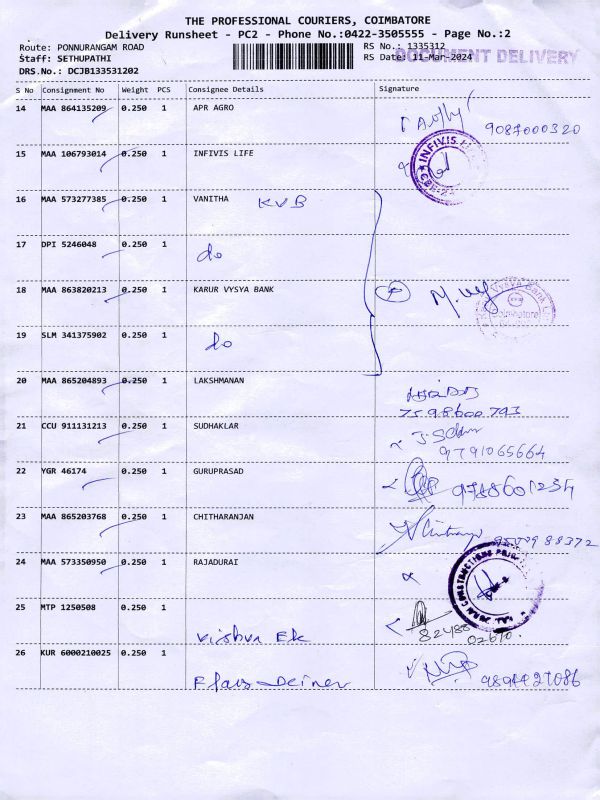 THE PROFESSIONAL COURIERS, COIMBATORE
Delivery Runsheet - PC2 - Phone No.:0422-3505555 - Page No.:2
Route: PONNURANGAM ROAD RS No.: 1335312
DOCUMENT DELIVERY
Staff: SETHUPATHI RS Date: 11-Mar-2024
DRS.No.: DCJB133531202
S No Consignment No Weight PCS Consignee Details Signature
14 MAA 864135209 0.250 1 APR AGRO
9087000320
15 MAA 106793014 0.250 1 INFIVIS LIFE
INFIVIS
16 MAA 573277385 0.250 1 VANITHA KVB
17 DPI 5246048 0.250 1
do
18 MAA 863820213 0.250 1 KARUR VYSYA BANK
Vysya Bank
Coimbatore
19 SLM 341375902 0.250 1
do
20 MAA 865204893 0.250 1 LAKSHMANAN
7598600793
21 CCU 911131213 0.250 1 SUDHAKLAR
9791065664
22 YGR 46174 0.250 1 GURUPRASAD
9788601234
23 MAA 865203768 0.250 1 CHITHARANJAN
88372
24 MAA 573350950 0.250 1 RAJADURAI
CONSTRUCTIONS
25 MTP 1250508 0.250 1
Vishva Ek
82488
02610
26 KUR 6000210025 0.250 1
9894427086